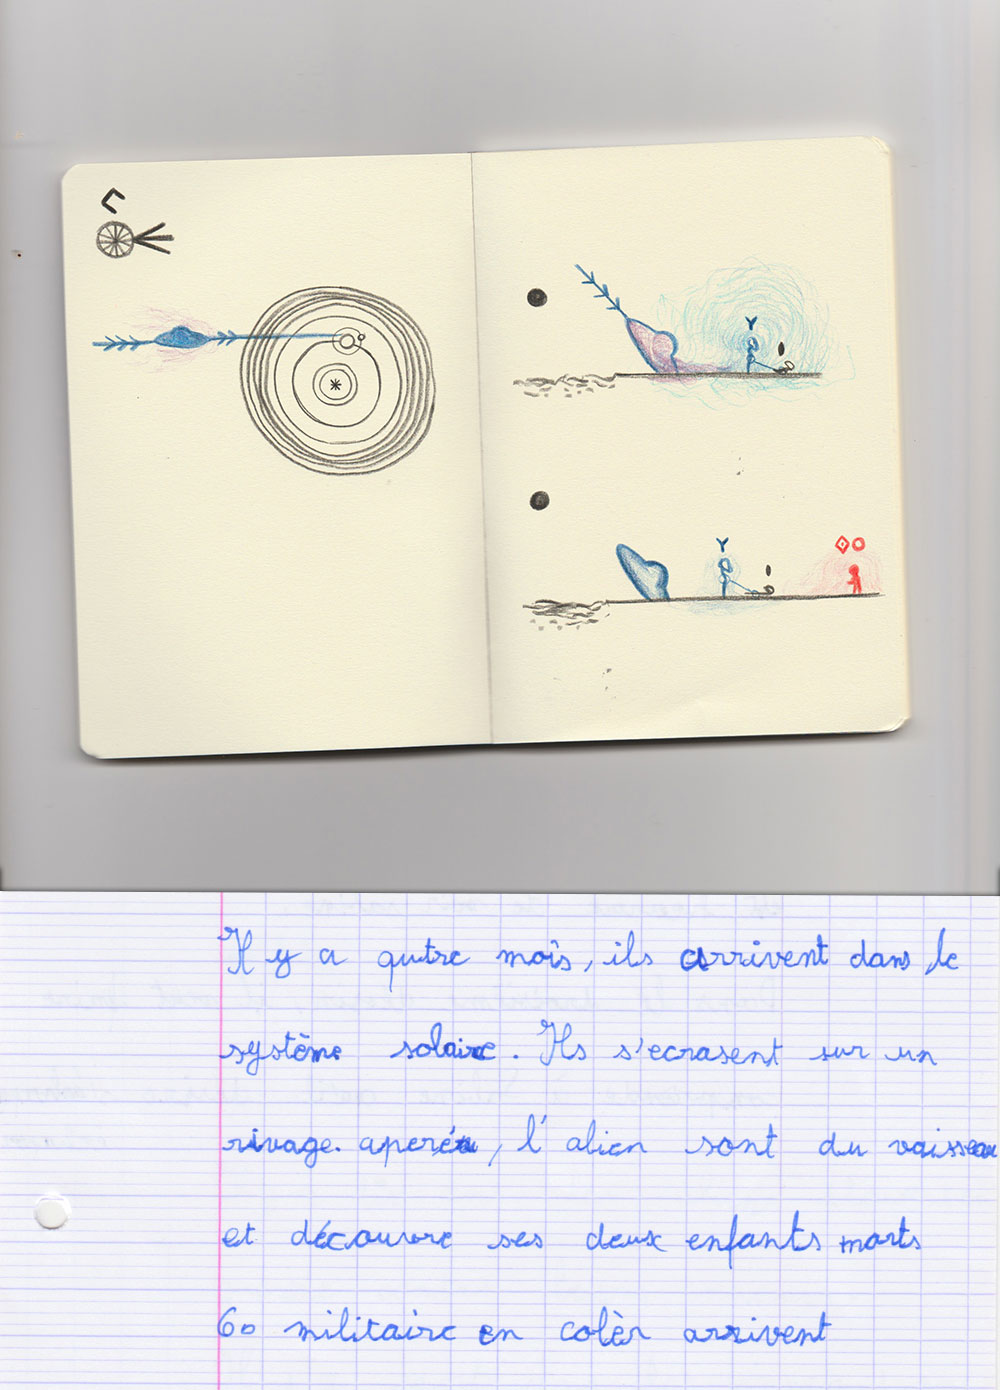 Il y a qutre mois, ils arrivent dans le
système solaire. Ils s'ecrasent sur un
rivage. , l'alien sont du vaisseau
et découvre ses deux enfants morts
60 militaire en colèr arrivent